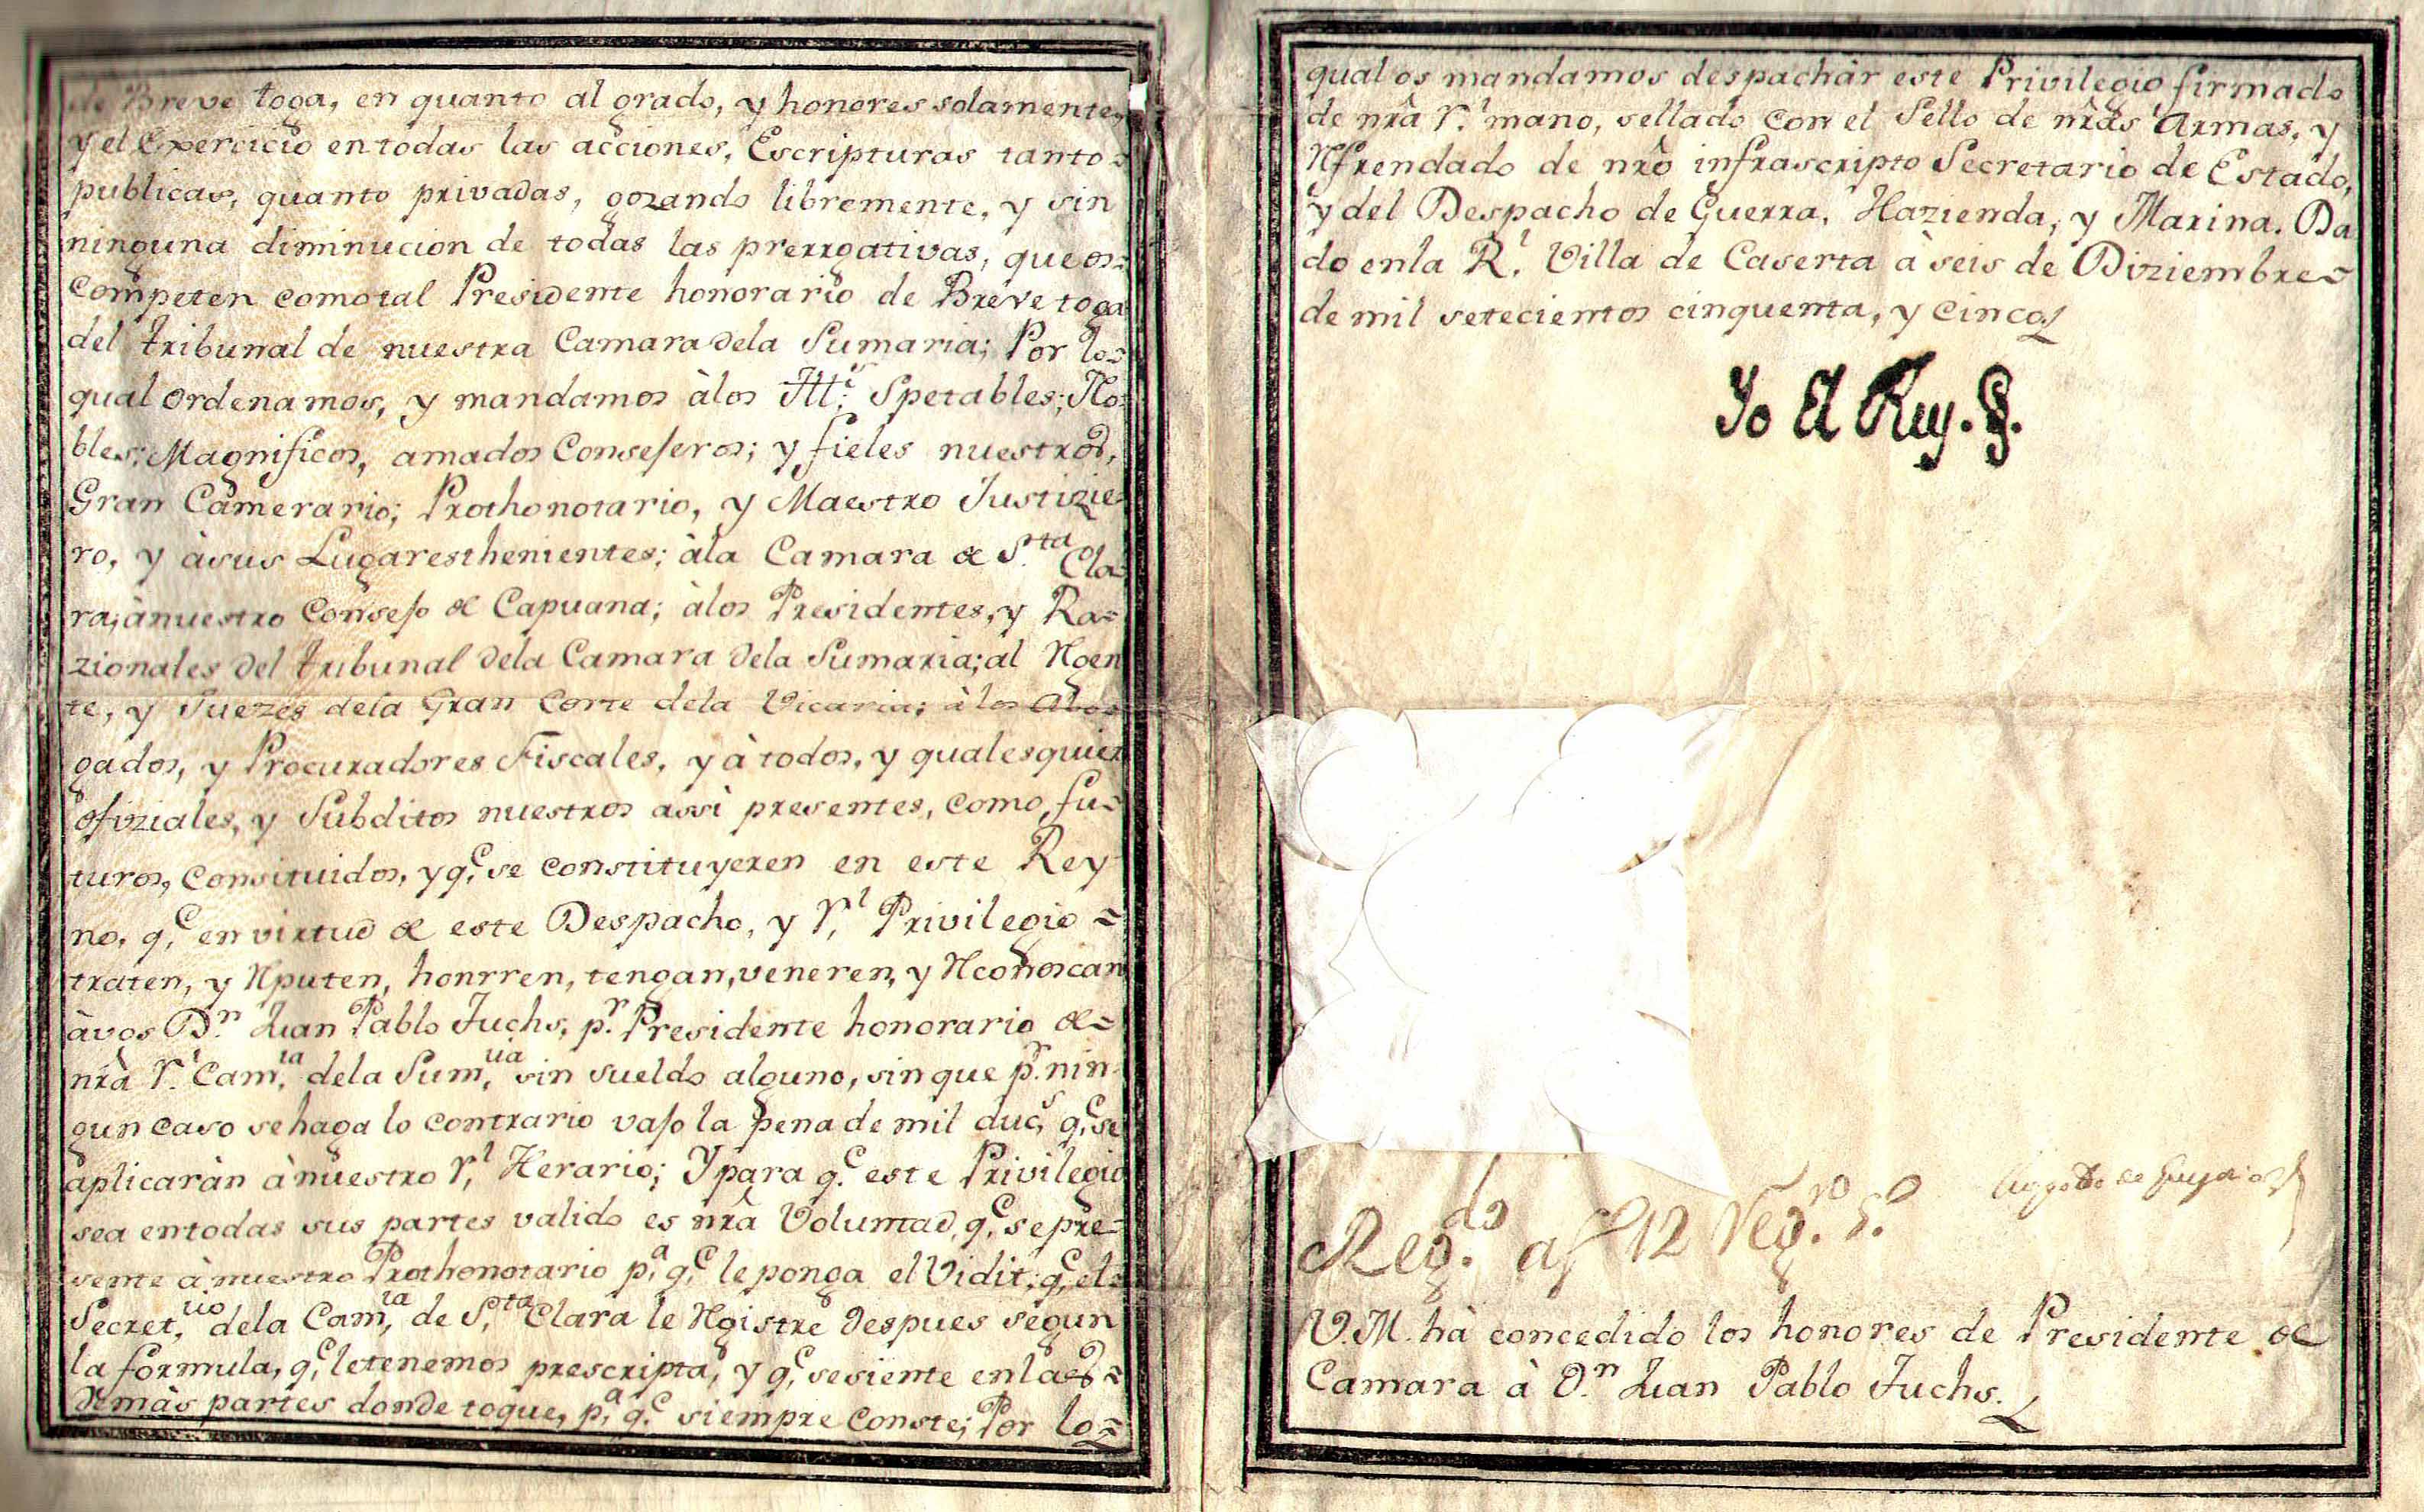 de Breve toga, en quanto al grado, y honores solamente,
y el Exercicio en todas las acciones, Escripturas tanto =
publicas, quanto privadas, gozando libremente, y sin
ninguna diminucion de todas las prerrogativas, que os =
Competen como tal Presidente honorario de Breve toga
del tribunal de nuestra Camara dela Sumaria; Por lo =
qual ordenamos, y mandamos àlos Ill.s Spetables; No=
bles; Magnificos, amados Consejeros; y fieles nuestros,
Gran Camerario; Prothonotario, y Maestro Justizie=
ro, y àsus Lugaresthenientes; àla Camara de S.ta Cla=
ra; ànuestro Consejo de Capuana; àlos Presidentes, y Ra=
zionales del tribunal dela Camara dela Sumaria; al Rgen
te, y Juezes dela Gran Corte dela Vicaria; à los Abo=
gados, y Procuradores Fiscales, y à todos, y qualesquier
ofiziales, y Subditos nuestros assi presentes, como fu=
turos, Constituidos, y q.e se constituyeren en este Rey
no, q.e en virtud de este Despacho, y r.l Privilegio =
traten, y Rputen, honrren, tengan, veneren, y Rconoscan
àvos D.n Juan Pablo Fuchs, p.r Presidente honorario de =
nrã r.l Cam.ra dela Sum.ria sin sueldo alguno, sin que p.r nin
gun caso se haga lo contrario vajo la pena de mil duc.s q.e se
aplicaràn ànuestro r.l Herario; Y para q.e este Privilegio
sea entodas sus partes valido es nrã Voluntad, q.e se pre=
sente à nuestro Prothonotario p.a q.e le ponga el Vidit; q.e el =
Secret.rio dela Cam.ra de S.ta Clara le Rgistre despues segun
la formula, q.e letenemos prescripta, y q.e sesiente enlas =
demàs partes donde toque, p.a q.e siempre Conste; Por lo =
qual os mandamos despachàr este Privilegio firmado
de nrã r.l mano, sellado con el Sello de nrãs Armas, y
Rfrendado de nrõ infrascripto Secretario de Estado,
y del Despacho de Guerra, Hazienda, y Marina. Da
do enla R.l Villa de Caserta à seis de Diziembre =
de mil setecientos cinquenta, y cinco
Yo El Rey.
Reg.do af 12 Reg.ro 5.o
V.M. hà concedido los honores de Presidente de
Camara à D.n Juan Pablo Fuchs.